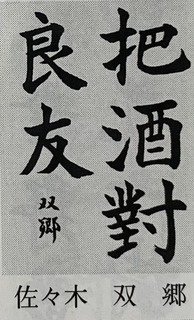 把酒對
良友
双郷
佐々木 双郷